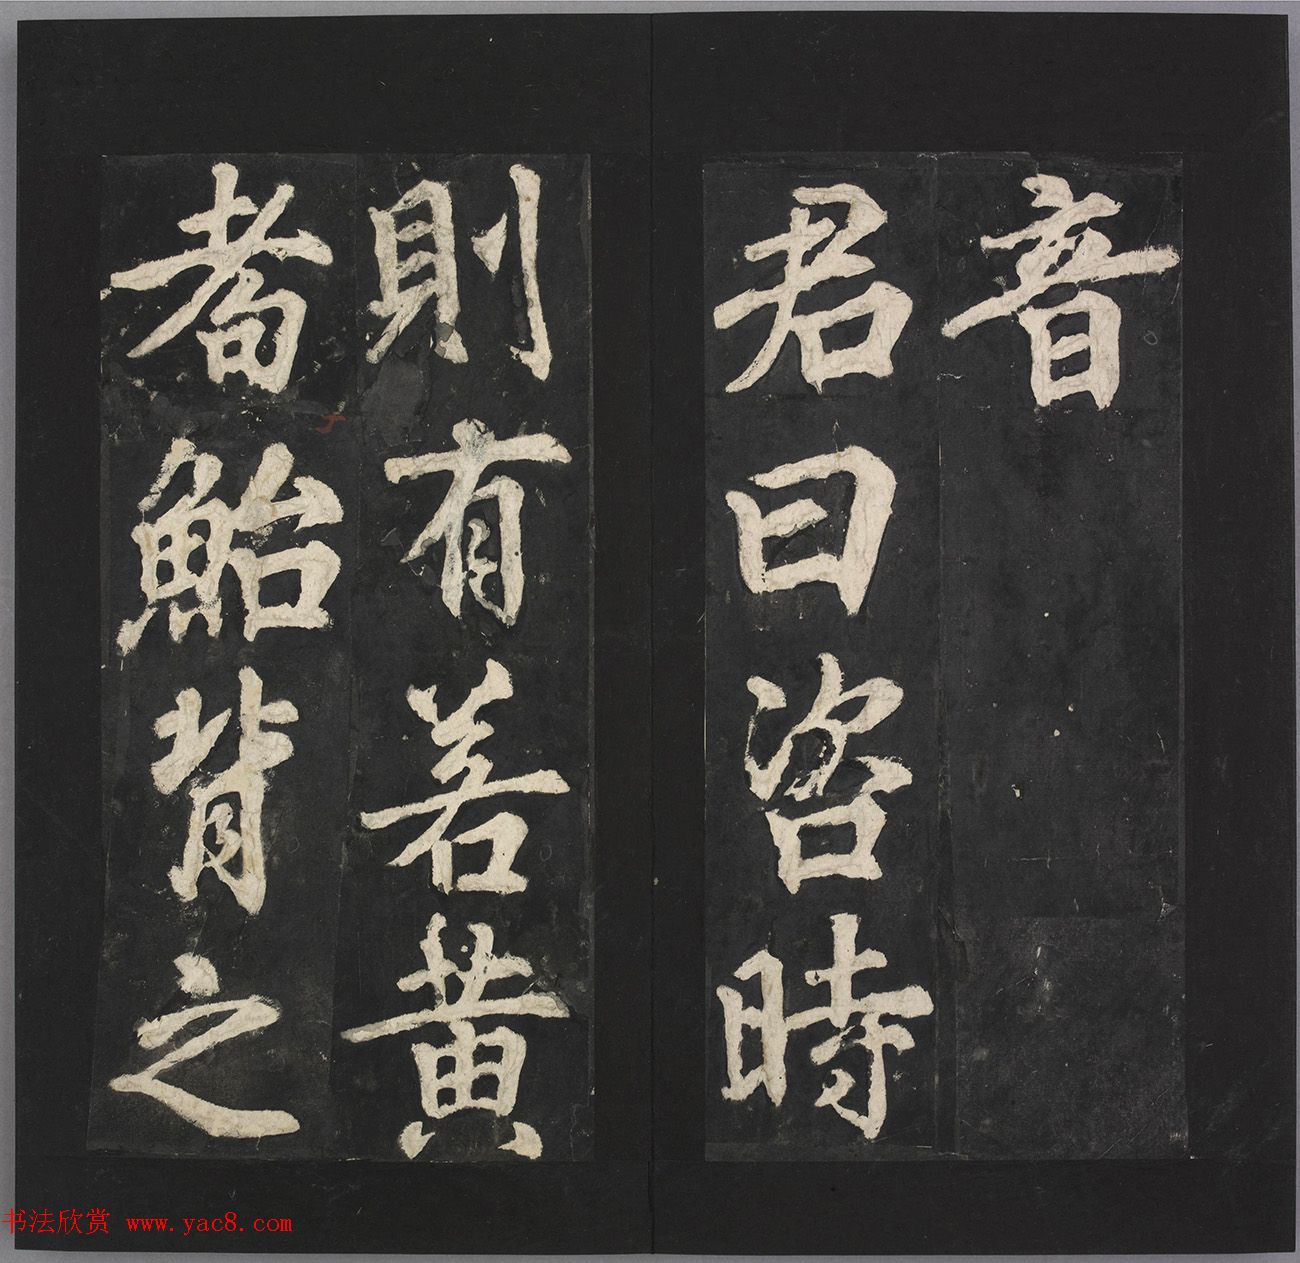 音
君曰咨時
則有若黄
耇鮐背之
书法欣赏 www.yac8.com